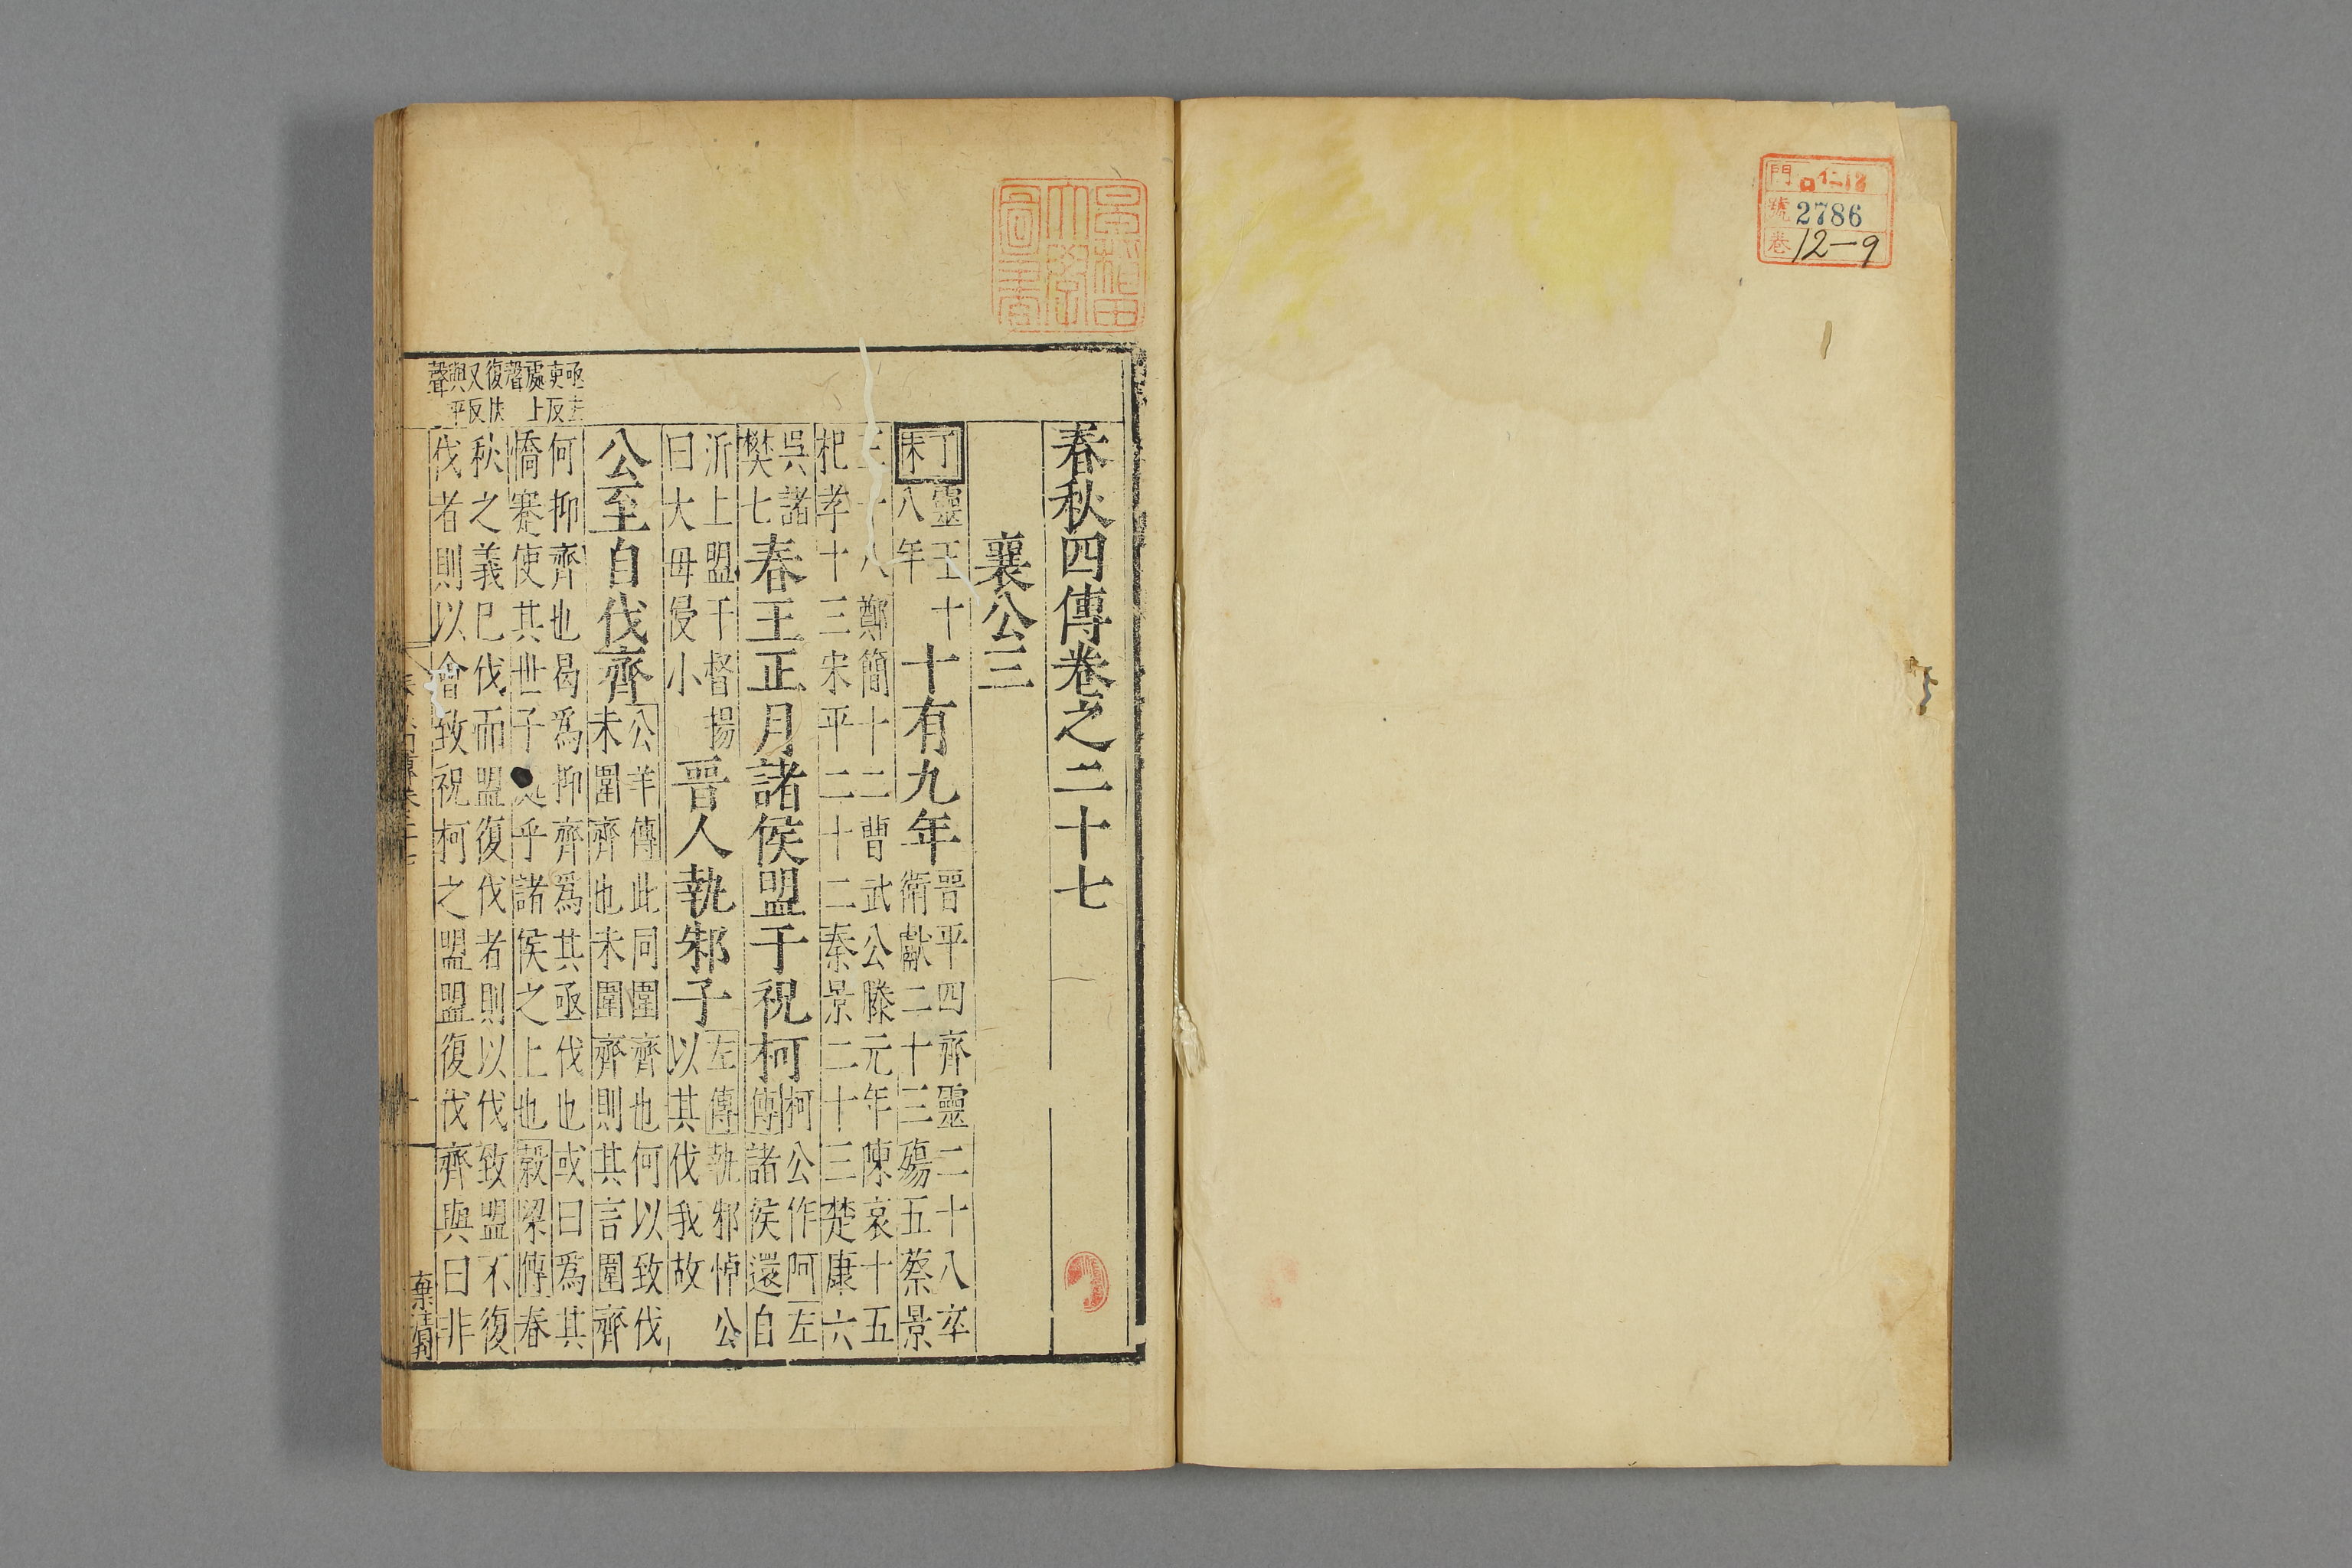 門 ロ12
號 2786
卷 12-9
早稲田大學圖書
春秋四傳卷之二十七
襄公三
丁未
靈王十
八年
十有九年
晉平四齊靈二十八卒
衛獻二十三殤五蔡景
三十八鄭簡十二曹武公滕元年陳哀十五
杞孝十三宋平二十二秦景二十三楚康六
吳諸
樊七
春王正月諸侯盟于祝柯
柯公作阿左
傳諸侯還自
沂上盟于督揚
曰大毋侵小
晉人執邾子
左傳執邾悼公
以其伐我故
公至自伐齊
公羊傳此同圍齊也何以致伐
未圍齊也未圍齊則其言圍齊
亟去
吏反
處上
聲
復扶
又反
與平
聲
何抑齊也曷爲抑齊爲其亟伐也或曰爲其
憍蹇使其世子處乎諸侯之上也穀梁傳春
秋之義巳伐而盟復伐者則以伐致盟不復
伐者則以會致祝柯之盟盟復伐齊與曰非